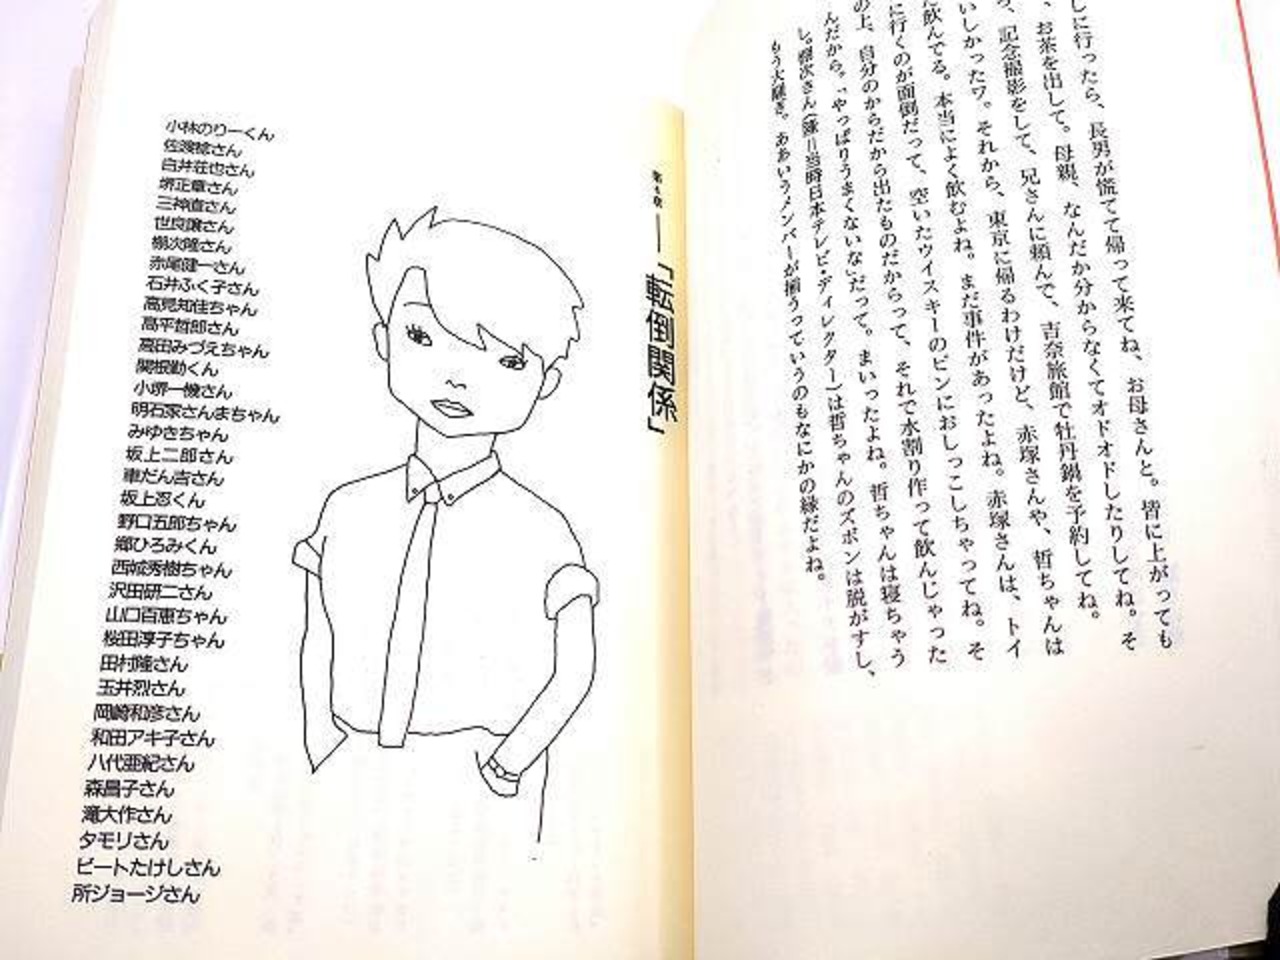 しに行ったら、長男が慌てて帰って来てね、お母さんと。皆に上がっても
、お茶を出して。母親、なんだか分からなくてオドオドしたりしてね。そ
ら、記念撮影をして、兄さんに頼んで、吉奈旅館で牡丹鍋を予約してね。
いしかったワ。それから、東京に帰るわけだけど、赤塚さんや、哲ちゃんは
た飲んでる。本当によく飲むよね。まだ事件があったよね。赤塚さんは、トイ
に行くのが面倒だって、空いたウイスキーのビンにおしっこしちゃってね。そ
の上、自分のからだから出たものだからって、それで水割り作って飲んじゃった
んだから。「やっぱりうまくないな」だって。まいったよね。哲ちゃんは寝ちゃう
し。棚次さん(隆＝当時日本テレビ・ディレクター)は哲ちゃんのズボンは脱がすし、
もう大騒ぎ。ああいうメンバーが揃うっていうのもなにかの縁だよね。
第4章──「転倒関係」
小林のりーくん
佐渡稔さん
白井荘也さん
堺正章さん
三神直さん
世良譲さん
棚次隆さん
赤尾健一さん
石井ふく子さん
高見知佳ちゃん
高平哲郎さん
高田みづえちゃん
関根勤くん
小堺一機さん
明石家さんまちゃん
みゆきちゃん
坂上二郎さん
車だん吉さん
坂上忍くん
野口五郎ちゃん
郷ひろみくん
西城秀樹ちゃん
沢田研二さん
山口百恵ちゃん
桜田淳子ちゃん
田村隆さん
玉井烈さん
岡崎和彦さん
和田アキ子さん
八代亜紀さん
森昌子さん
滝大作さん
タモリさん
ビートたけしさん
所ジョージさん